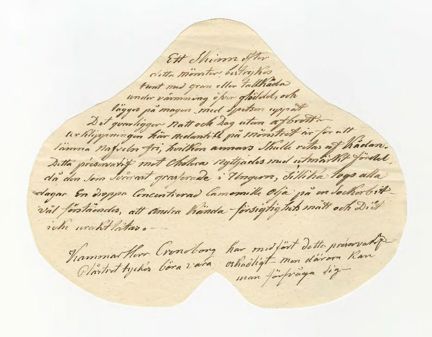 Ett Skinn efter
detta mönster bestrykes
tunt med gran eller tallkåda
under värmning öfver glödeld, och
lägges på magen med spetsen uppåt
Det quarligger natt och dag utan afbrott
urklippningen här nedantill på mönstret är för att
lämna nafveln fri, hvilken annars skulle retas af Kådan.
Detta præservatif mot Cholera nyttjades med utmärkt fördel
då den som svårast graserade i Ungern, Tillika togs alla
dagar En droppe Concentrerad Camomille Olja på en Sockerbit
väl förståendes, att Andra Kända försigtighets mått och Diät
icke uraktlåtas.
Kammar Herr Croneborg har medfört detta præservatif
tyckes böra vara men därom Kan
man förfråga sig